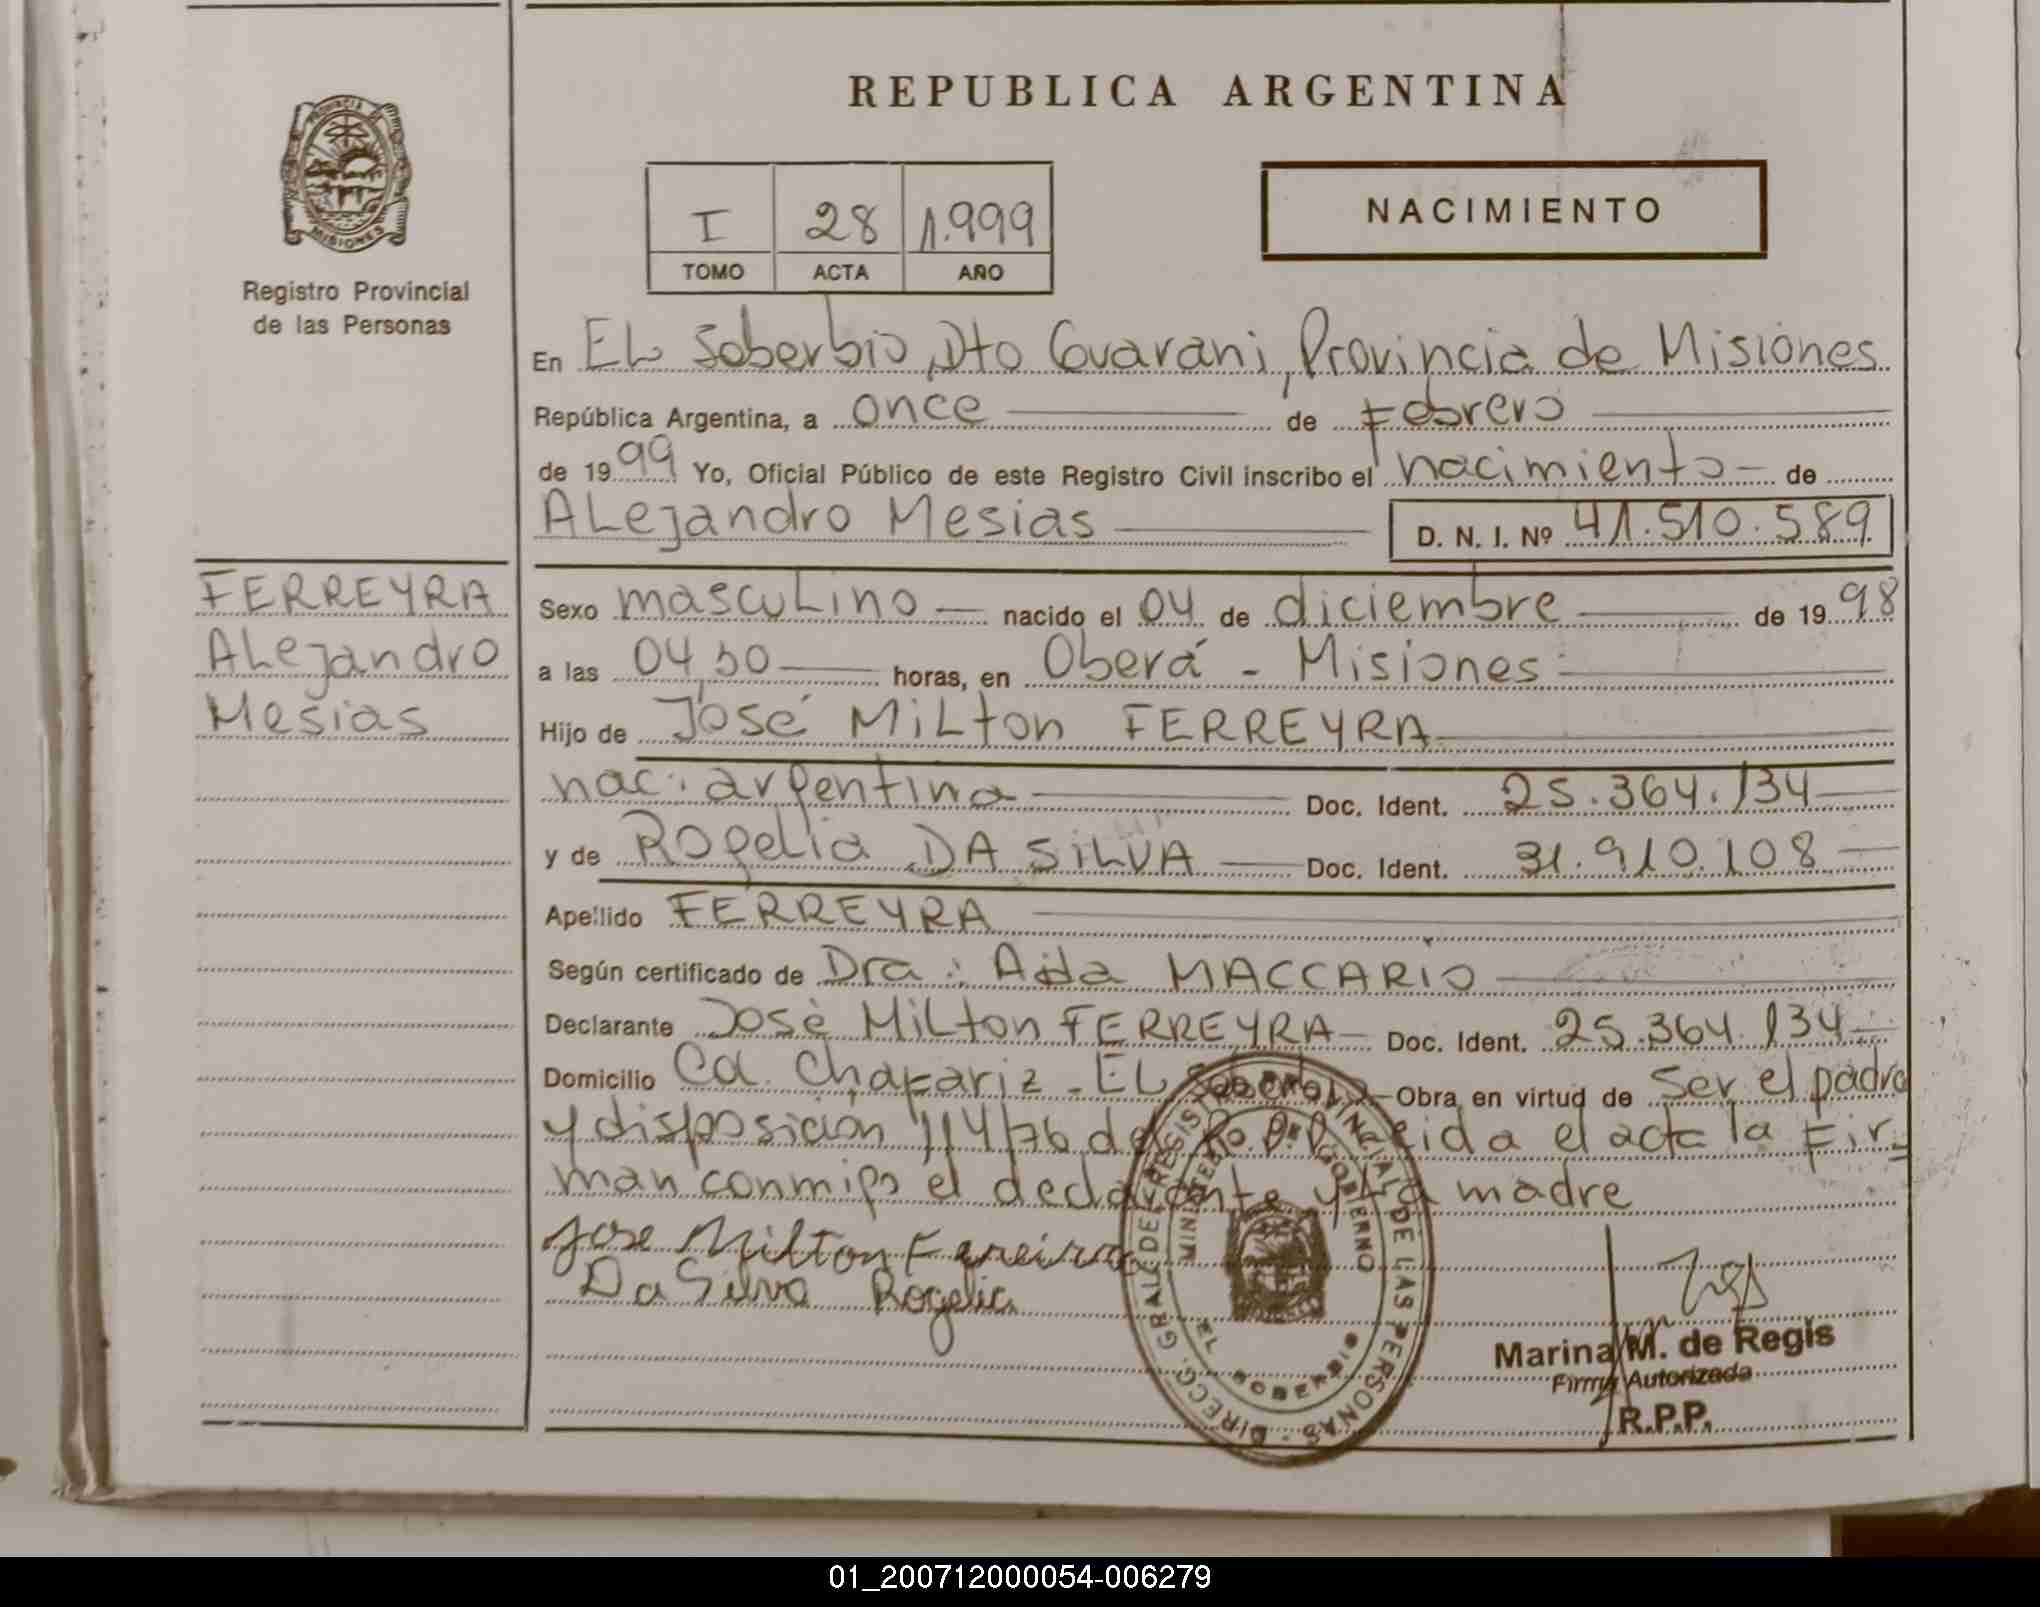 REPUBLICA ARGENTINA
PROVINCIA DE
MISIONES
Registro Provincial
de las Personas
I 28 1.999
TOMO ACTA AÑO
NACIMIENTO
En EL Soberbio, Dto Guarani, Provincia de Misiones
República Argentina, a once de Febrero
de 1999 Yo, Oficial Público de este Registro Civil inscribo el nacimiento de
ALejandro Mesias D. N. I. Nº 41.510.589
FERREYRA
ALejandro
Mesias
Sexo mascuLino nacido el 04 de diciembre de 1998
a las horas, en Oberá - Misiones
Hijo de José MiLton FERREYRA
nac: argentina Doc. Ident. 25.364.134
y de RogeLia DA SiLVA Doc. Ident. 31.910.108
Apellido FERREYRA
Según certificado de Dra: Aida MACCARIO
Declarante José MiLton FERREYRA Doc. Ident. 25.364.134
Domicilio Cd. Chafariz - EL Soberbio Obra en virtud de ser el padre
y disposición 114/76 del Ro. P. P. Leida el acta la fir-
man conmigo el declarante y la madre
Jose Milton Fereira
Da Silva Rogelia
DIRECC. GRAL. DE REGISTRO PROVINCIAL DE LAS PERSONAS
MINISTERIO DE GOBIERNO
EL SOBERBIO
Marina M. de Regis
Firma Autorizada
R.P.P.
01_200712000054-006279